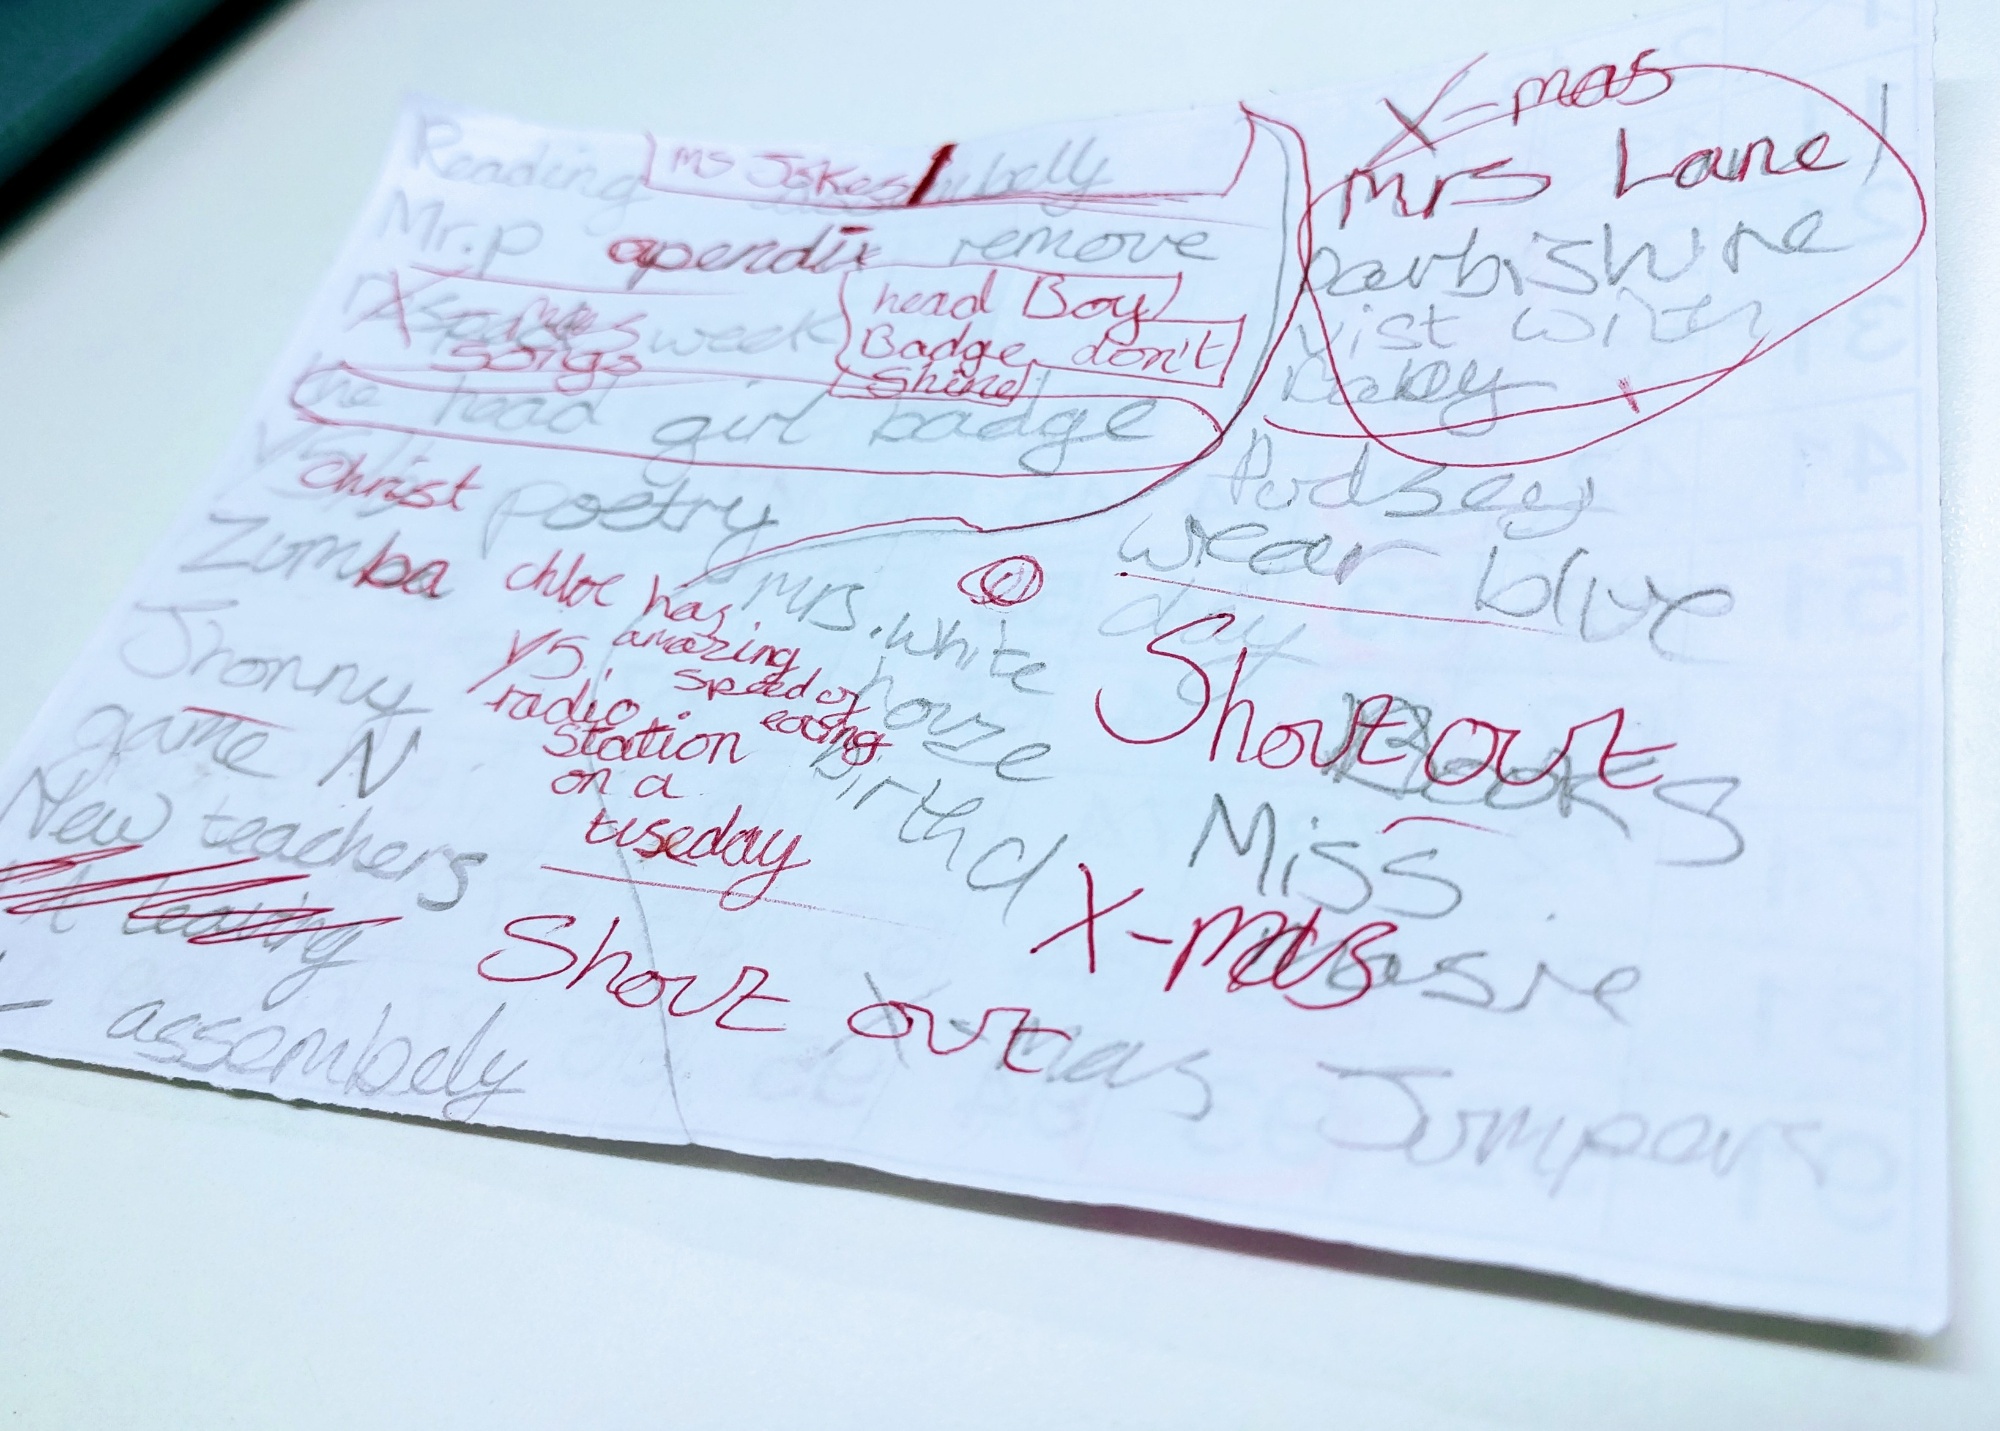 Reading
Ms Jokes
Mr.p apendix remove
X-mas songs week
head Boy
Badge don't
Shine
head girl badge
Y5
Christ poetry
Zumba
chloe has
amazing
speed of
eating
Y5
radio
station
on a
tuseday
Mrs. White
houze
birthd
Jhonny
game N
New teachers
assembely
Shout out
X-mas
Mrs Lane
Darbishire
vist with
baby
Pudsey
wear blue
day
Shout out
Books
Miss
X-mas
X-mas Jumpers